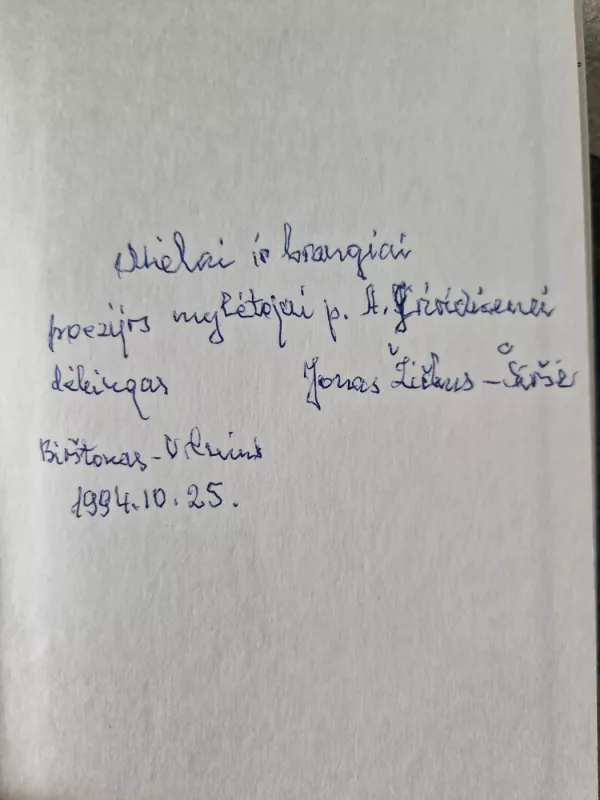 Mielai ir brangiai
poezijos mylėtojai p. A.
dėkingas Jonas
Birštonas-Vilnius
1994.10.25.